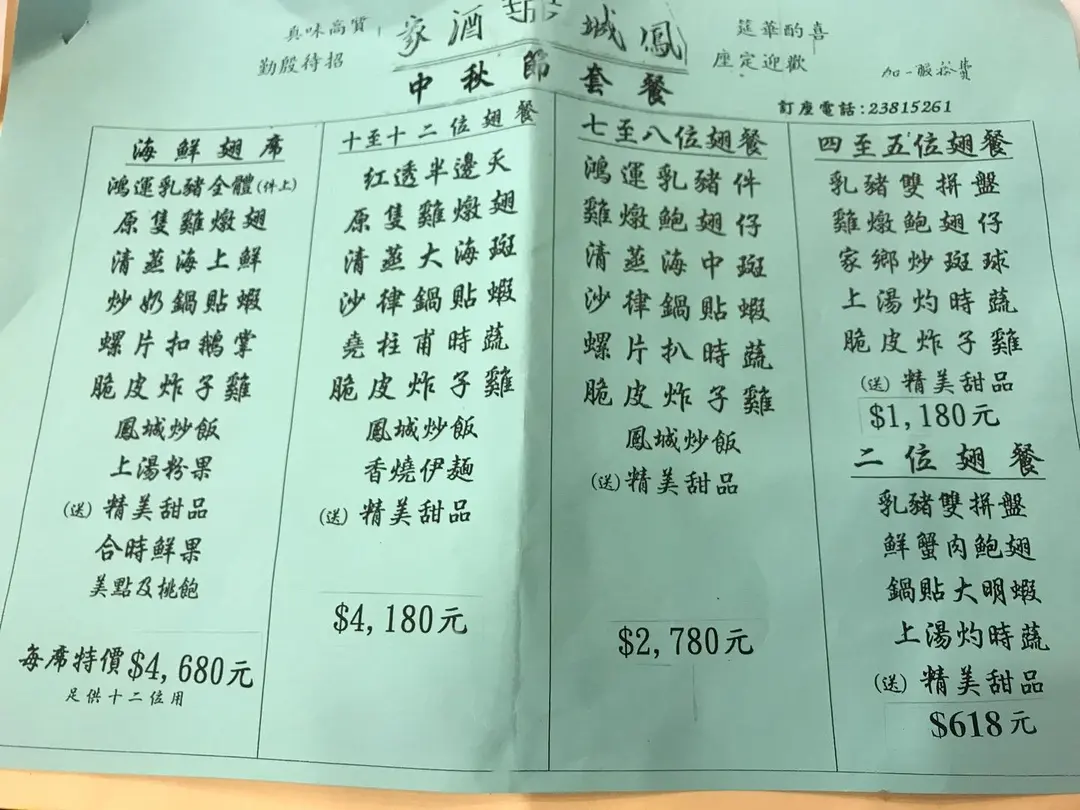 鳳城酒家
喜酌華筵
歡迎定座
質高味真
招待殷勤
中秋節套餐
加一服務費
訂座電話:23815261
海鮮翅席
鴻運乳豬全體(件上)
原隻雞燉翅
清蒸海上鮮
炒奶鍋貼蝦
螺片扣鵝掌
脆皮炸子雞
鳳城炒飯
上湯粉果
(送)精美甜品
合時鮮果
美點及桃飽
每席特價$4,680元
足供十二位用
十至十二位翅餐
紅透半邊天
原隻雞燉翅
清蒸大海斑
沙律鍋貼蝦
堯柱甫時蔬
脆皮炸子雞
鳳城炒飯
香燒伊麵
(送)精美甜品
$4,180元
七至八位翅餐
鴻運乳豬件
雞燉鮑翅仔
清蒸海中斑
沙律鍋貼蝦
螺片扒時蔬
脆皮炸子雞
鳳城炒飯
(送)精美甜品
$2,780元
四至五位翅餐
乳豬雙拼盤
雞燉鮑翅仔
家鄉炒斑球
上湯灼時蔬
脆皮炸子雞
(送)精美甜品
$1,180元
二位翅餐
乳豬雙拼盤
鮮蟹肉鮑翅
鍋貼大明蝦
上湯灼時蔬
(送)精美甜品
$618元